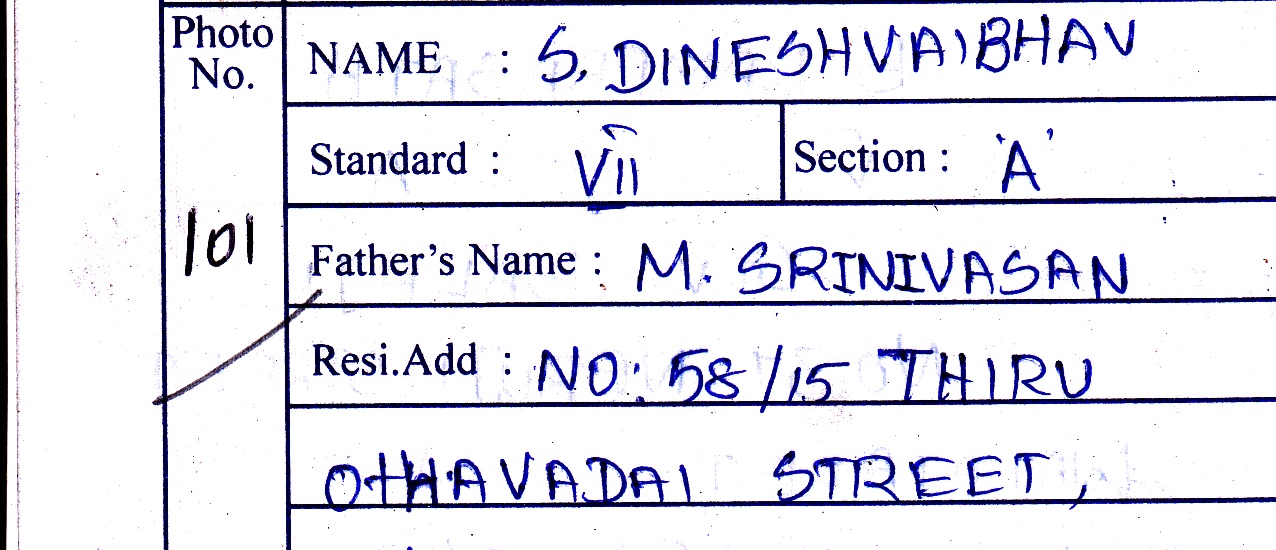 Photo No.
NAME : S. DINESHVAIBHAV
Standard : VII
Section : 'A'
101
Father's Name : M. SRINIVASAN
Resi.Add : NO: 58/15 THIRU
OTHHAVADAI STREET,